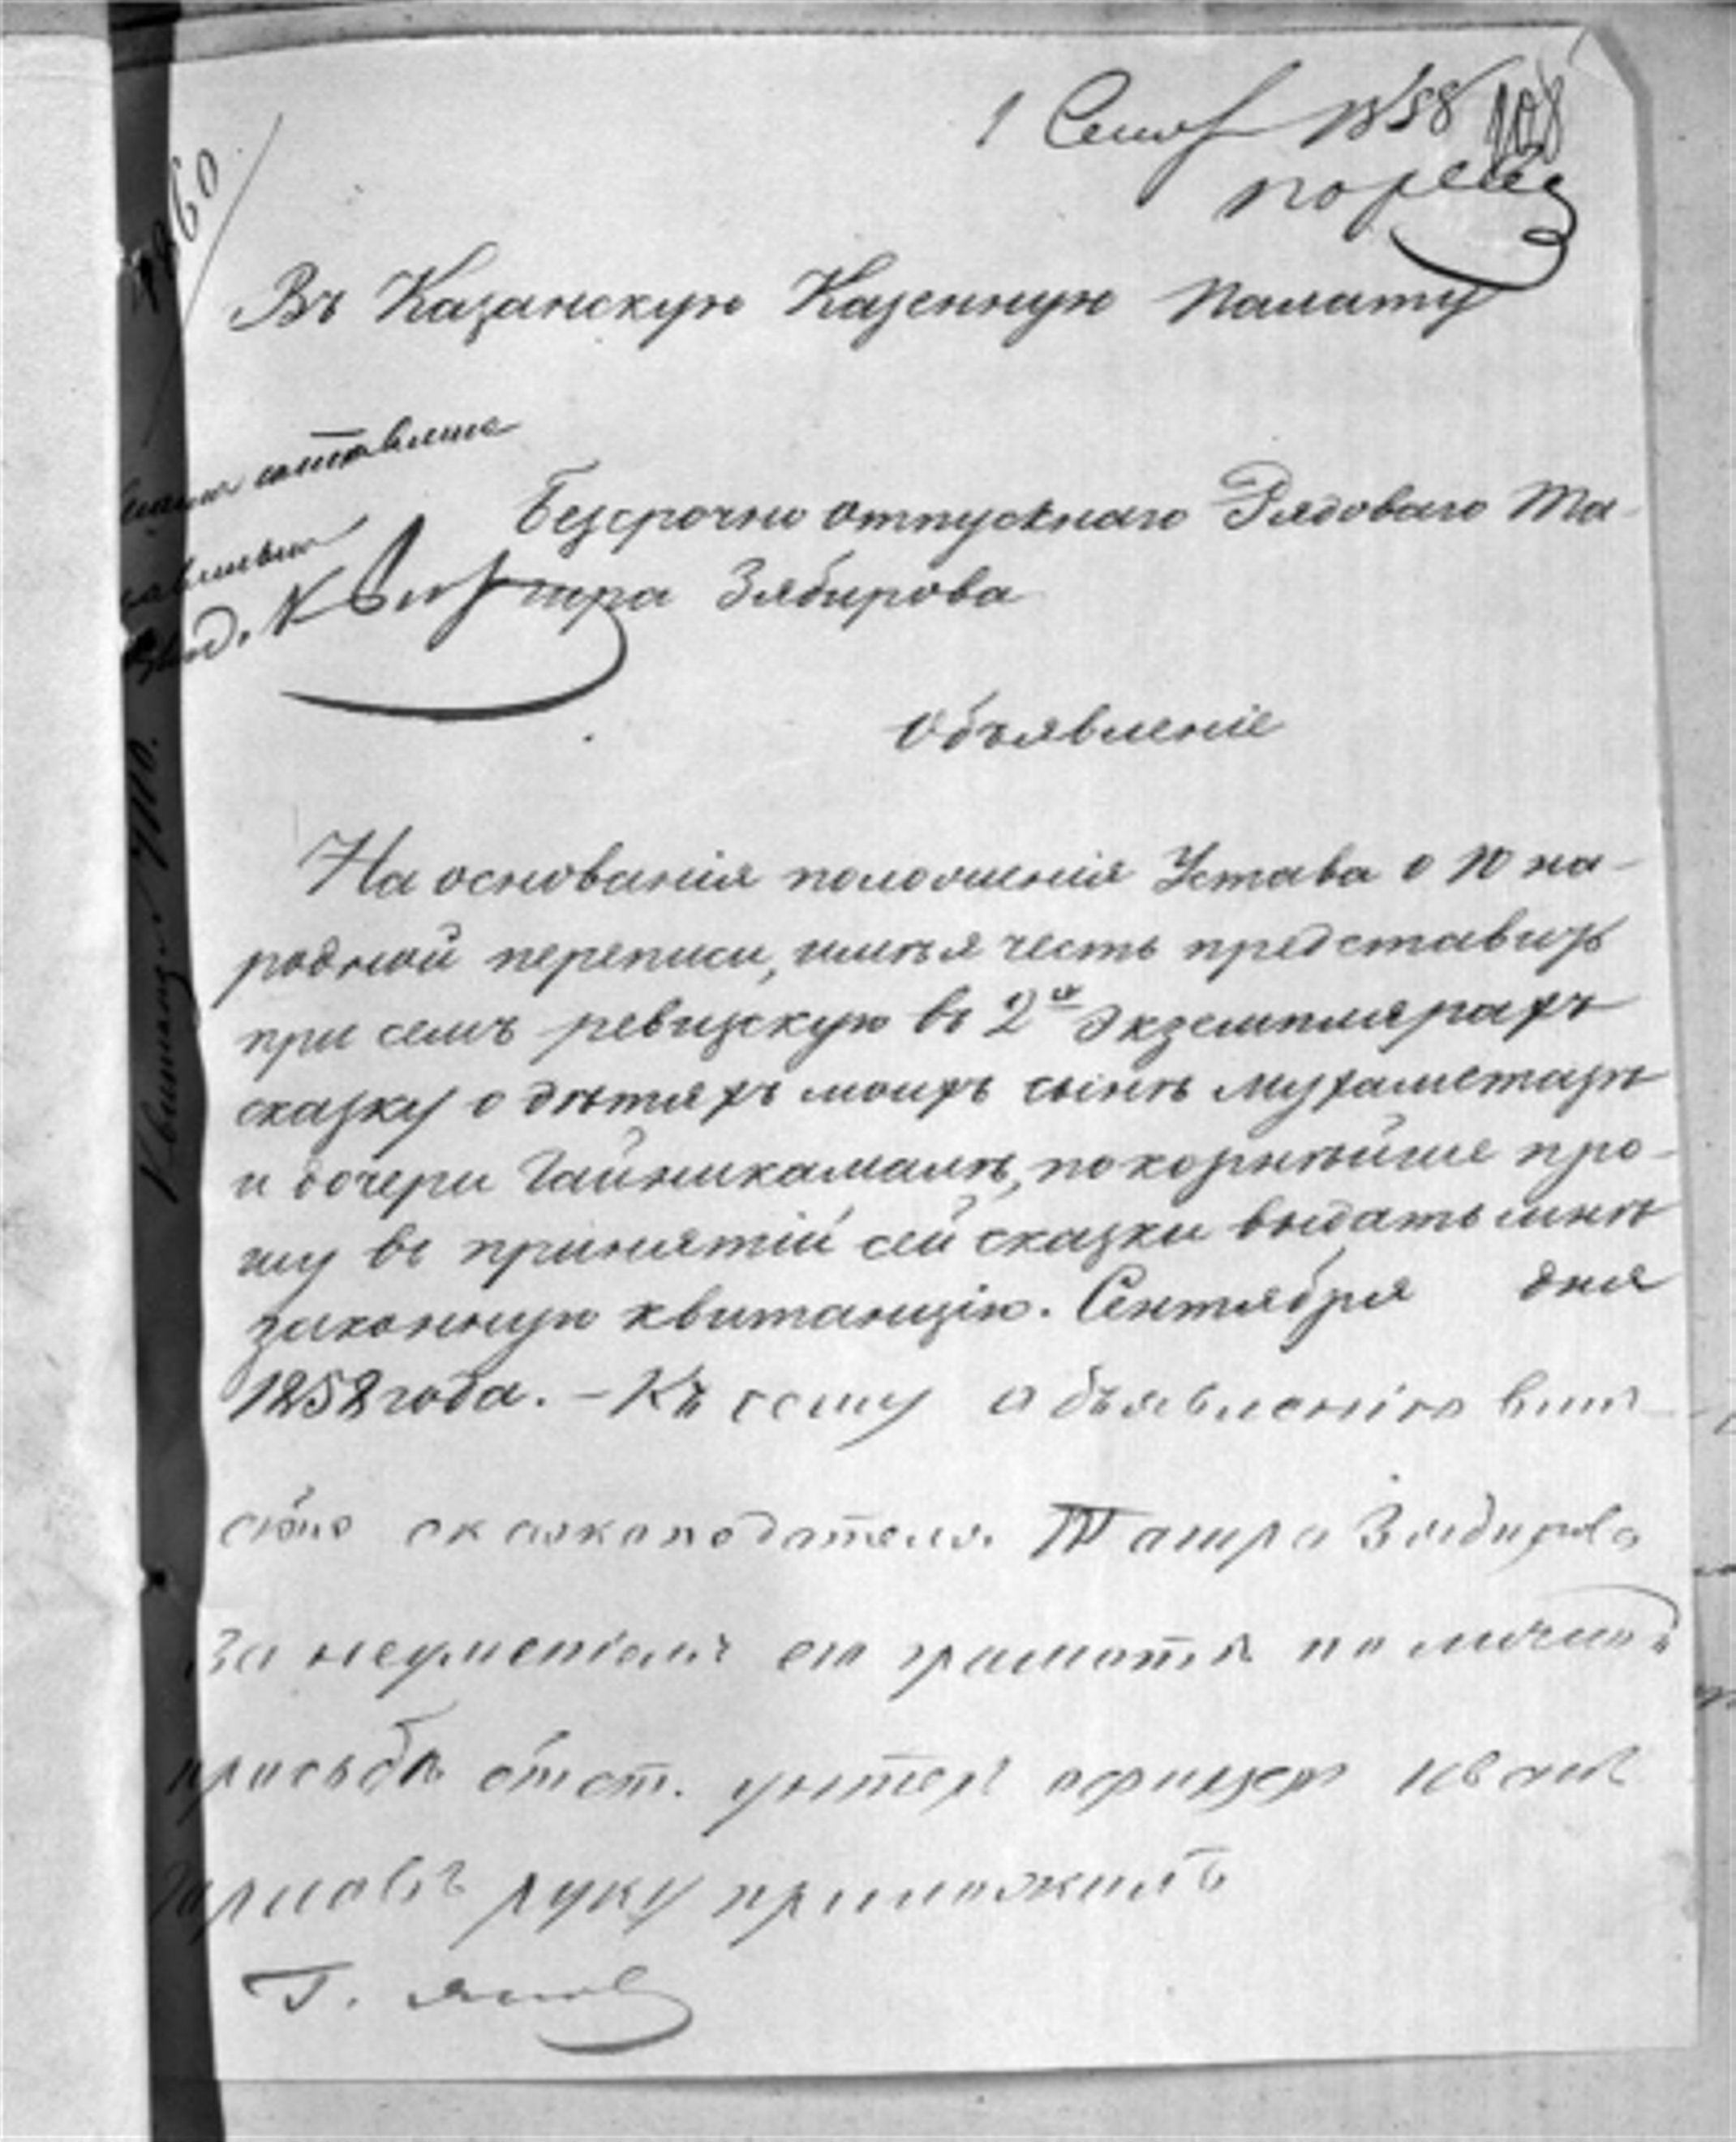 1 Сент 1858 108
Въ Казанскую Казенную Палату
Безсрочно отпускнаго Рядоваго Та-
гира Зябирова
Объявленіе
На основанія положенія Устава о 10 на-
родной переписи, имѣя честь представить
при семъ ревизскую въ 2хъ экземплярахъ
сказку о дѣтяхъ моихъ сынѣ Мухаметазѣ
и дочери Гайникамалѣ, покорнѣйше про-
шу въ принятіи сей сказки выдать мнѣ
законную квитанцію. Сентября дня
1858 года. – Къ сему объявленію вмѣ-
сто сказкоподателя Тагира Зябирова
за неумѣніемъ его грамотѣ по личной
просьбѣ отст. унтеръ офицеръ Иванъ
руку приложилъ